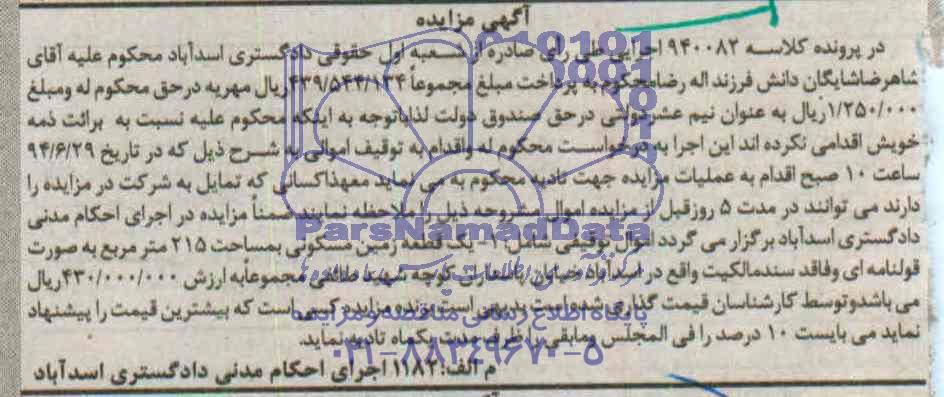 آگهی مزایده
در پرونده کلاسه ۹۴۰۰۸۲ اجرایی طی رأی صادره از شعبه اول حقوقی دادگستری اسدآباد محکوم علیه آقای
شاهرضاشایگان دانش فرزند اله رضامحکوم به پرداخت مبلغ مجموعاً ۴۳۹/۵۴۴/۱۳۴ریال مهریه درحق محکوم له ومبلغ
۱/۲۵۰/۰۰۰ریال به عنوان نیم عشردولتی درحق صندوق دولت لذاباتوجه به اینکه محکوم علیه نسبت به برائت ذمه
خویش اقدامی نکرده اند این اجرا به درخواست محکوم له واقدام به توقیف اموالی به شرح ذیل که در تاریخ ۹۴/۶/۲۹
ساعت ۱۰ صبح اقدام به عملیات مزایده جهت تادیه محکوم به می نماید معهذاکسانی که تمایل به شرکت در مزایده را
دارند می توانند در مدت ۵ روزقبل از مزایده اموال مشروحه ذیل را ملاحظه نمایند ضمناً مزایده در اجرای احکام مدنی
دادگستری اسدآباد برگزار می گردد اموال توقیفی شامل: ۱- یک قطعه زمین مسکونی بمساحت ۲۱۵ متر مربع به صورت
قولنامه ای وفاقد سندمالکیت واقع در اسدآباد خیابان کوچه شهید مجموعاًبه ارزش ۴۳۰/۰۰۰/۰۰۰ریال
می باشدوتوسط کارشناسان قیمت گذاری شده است بدیهی است برنده مزایده کسی است که بیشترین قیمت را پیشنهاد
نماید می بایست ۱۰ درصد را فی المجلس ومابقی را ظرف مدت یکماه تادیه نماید.
م الف: ۱۱۸۲ اجرای احکام مدنی دادگستری اسدآباد
ParsNamadData
پایگاه اطلاع رسانی مناقصه و مزایده
۰۲۱-۸۸۳۴۹۶۷۰-۵